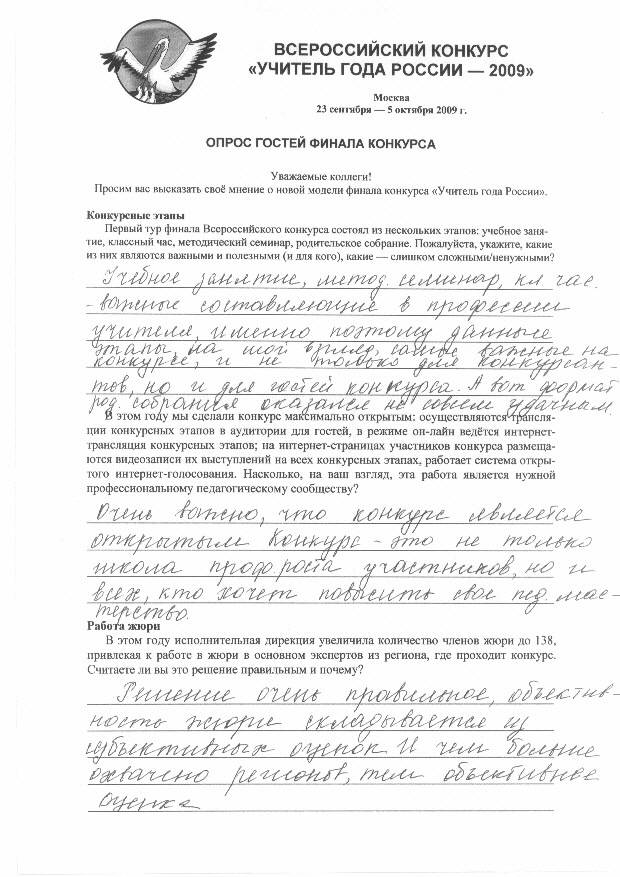 ВСЕРОССИЙСКИЙ КОНКУРС
«УЧИТЕЛЬ ГОДА РОССИИ — 2009»
Москва
23 сентября — 5 октября 2009 г.
ОПРОС ГОСТЕЙ ФИНАЛА КОНКУРСА
Уважаемые коллеги!
Просим вас высказать своё мнение о новой модели финала конкурса «Учитель года России».
Конкурсные этапы
Первый тур финала Всероссийского конкурса состоял из нескольких этапов: учебное заня-
тие, классный час, методический семинар, родительское собрание. Пожалуйста, укажите, какие
из них являются важными и полезными (и для кого), какие — слишком сложными/ненужными?
Учебное занятие, метод. семинар, кл. час.
- важные составляющие в профессии
учителя, именно поэтому данные
этапы, на мой взгляд, самые важные на
конкурсе, и не только для конкурсан-
тов, но и для гостей конкурса. А вот формат
род. собрания оказался не совсем удачным.
В этом году мы сделали конкурс максимально открытым: осуществляются трансля-
ции конкурсных этапов в аудитории для гостей, в режиме он-лайн ведётся интернет-
трансляция конкурсных этапов; на интернет-страницах участников конкурса размеща-
ются видеозаписи их выступлений на всех конкурсных этапах, работает система откры-
того интернет-голосования. Насколько, на ваш взгляд, эта работа является нужной
профессиональному педагогическому сообществу?
Очень важно, что конкурс является
открытым. Конкурс - это не только
школа проф. роста участников, но и
всех, кто хочет повысить свое пед. мас-
терство.
Работа жюри
В этом году исполнительная дирекция увеличила количество членов жюри до 138,
привлекая к работе в жюри в основном экспертов из региона, где проходит конкурс.
Считаете ли вы это решение правильным и почему?
Решение очень правильное, объектив-
ность жюри складывается из
субъективных оценок. И чем больше
охвачено регионов, тем объективнее
оценка